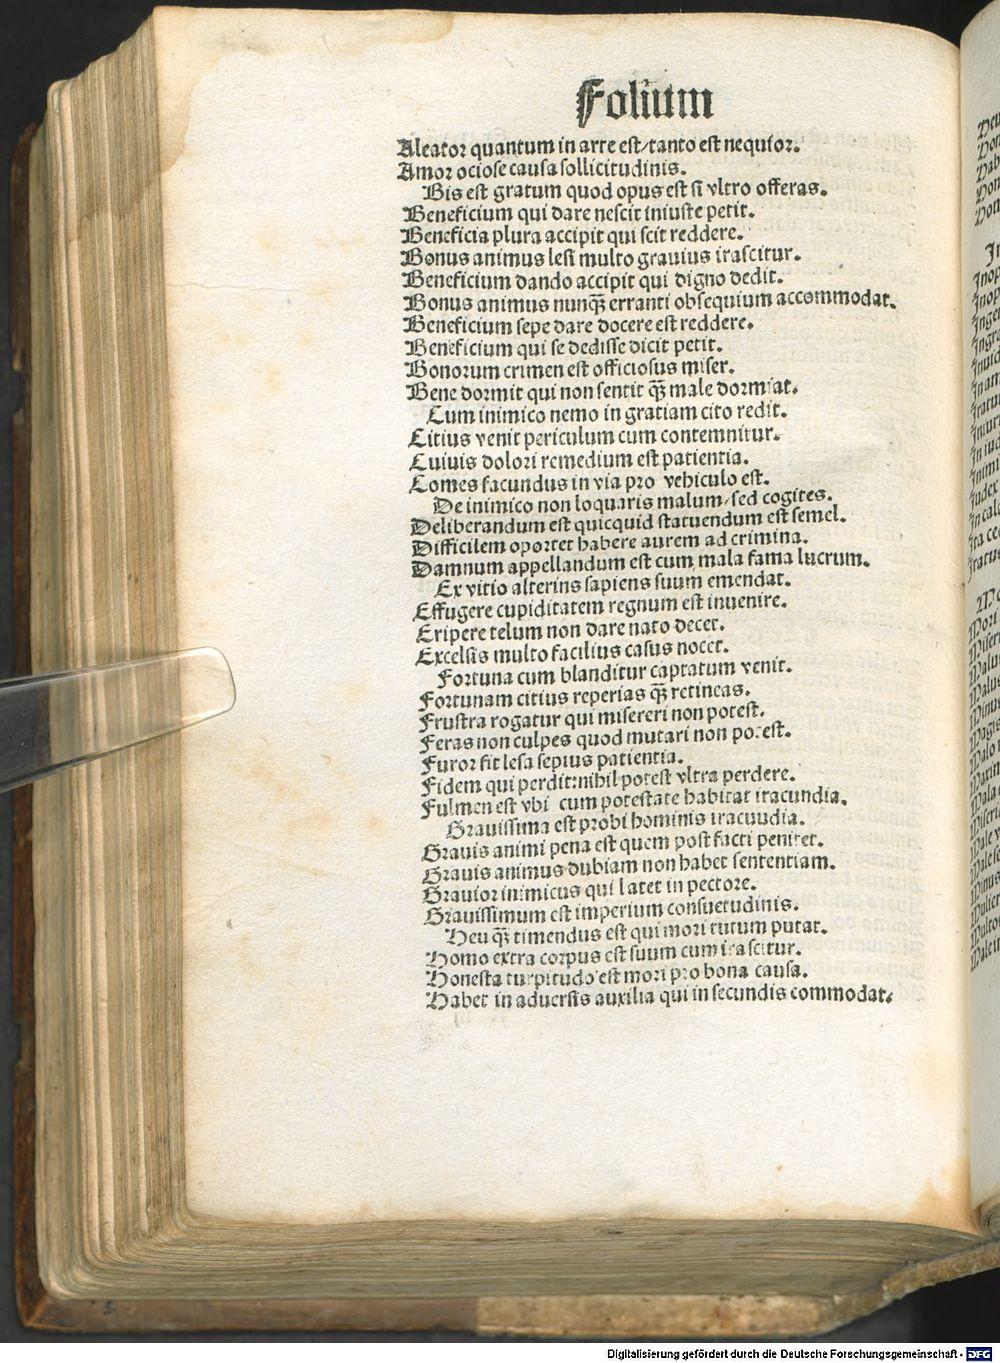 Folium
Aleator quantum in arte est/tanto est nequior.
Amor ociose causa sollicitudinis.
Bis est gratum quod opus est si vltro offeras.
Beneficium qui dare nescit iniuste petit.
Beneficia plura accipit qui scit reddere.
Bonus animus lesi multo grauius irascitur.
Beneficium dando accipit qui digno dedit.
Bonus animus nunqȝ erranti obsequium accommodat.
Beneficium sepe dare docere est reddere.
Beneficium qui se dedisse dicit petit.
Bonorum crimen est officiosus miser.
Bene dormit qui non sentit qȝ male dormiat.
Cum inimico nemo in gratiam cito redit.
Citius venit periculum cum contemnitur.
Cuiuis dolori remedium est patientia.
Comes facundus in via pro vehiculo est.
De inimico non loquaris malum/sed cogites.
Deliberandum est quicquid statuendum est semel.
Difficilem oportet habere aurem ad crimina.
Damnum appellandum est cum mala fama lucrum.
Ex vitio alterins sapiens suum emendat.
Effugere cupiditatem regnum est inuenire.
Eripere telum non dare nato decet.
Excelsis multo facilius casus nocet.
Fortuna cum blanditur captatum venit.
Fortunam citius reperias qȝ retineas.
Frustra rogatur qui misereri non potest.
Feras non culpes quod mutari non potest.
Furor fit lesa sepius patientia.
Fidem qui perdit:nihil potest vltra perdere.
Fulmen est vbi cum potestate habitat iracundia.
Grauissima est probi hominis iracuudia.
Grauis animi pena est quem post facti penitet.
Grauis animus dubiam non habet sententiam.
Grauior inimicus qui latet in pectore.
Grauissimum est imperium consuetudinis.
Heu qȝ timendus est qui mori tutum putat.
Homo extra corpus est suum cum irascitur.
Honesta turpitudo est mori pro bona causa.
Habet in aduersis auxilia qui in secundis commodat.
Digitalisierung gefördert durch die Deutsche Forschungsgemeinschaft - DFG